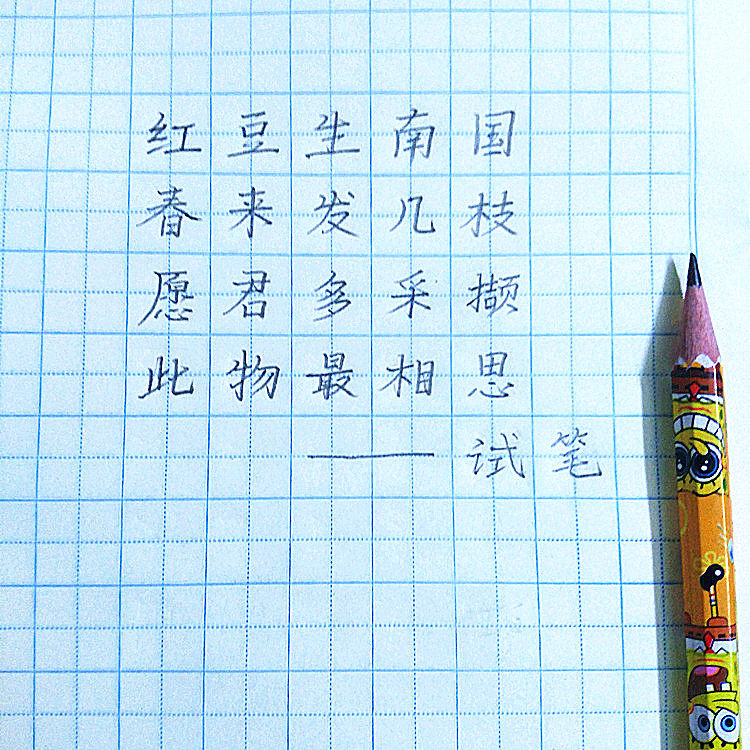 红豆生南国
春来发几枝
愿君多采撷
此物最相思
——试笔